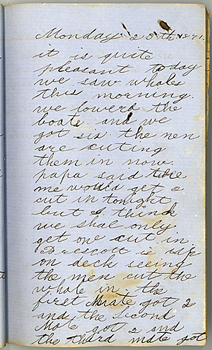 Monday 25th 1871.
it is quite
pleasant today
we saw whales
this morning
we lowerd the
boats and we
got six the men
are cuting
them in now.
papa said
me would get 2
cut in tonight
but I think
we shal only
get one cut in.
Prescott is
on deck seing
the men cut the
whale in. the
first Mate got 2
and the second
Mate got 2 and
the third mate got